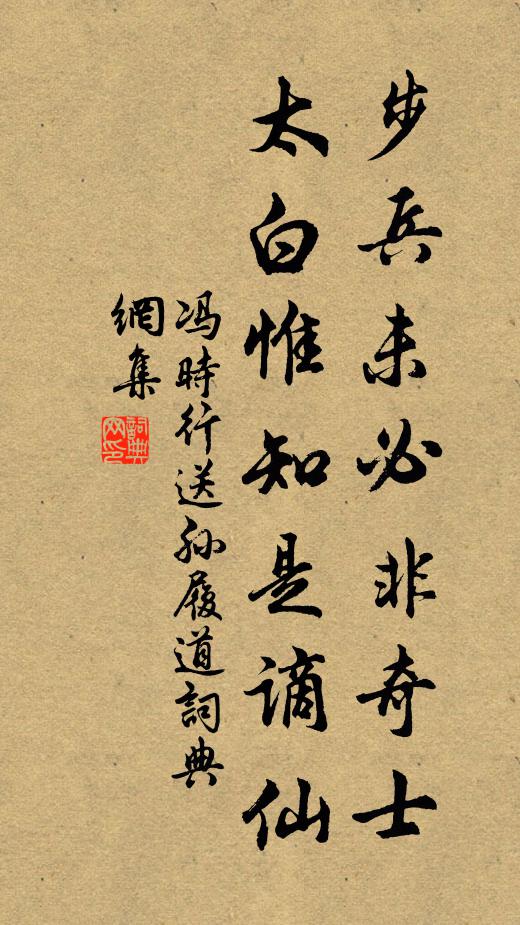 步兵未必非奇士
太白惟知是谪仙
冯時行送孙履道詞典
網集
詞典
网印